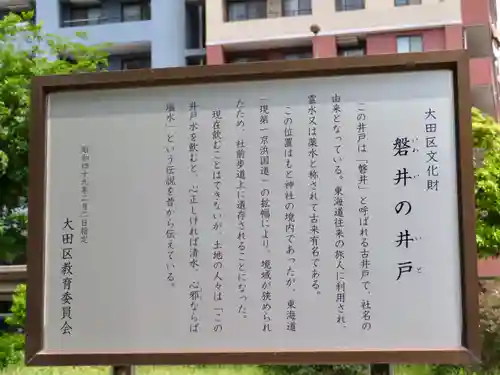 大田区文化財
磐井の井戸
いわい
いど
この井戸は「磐井」と呼ばれる古井戸で、社名の
由来となっている。東海道往来の旅人に利用され、
霊水又は薬水と称されて古来有名である。
この位置はもと神社の境内であったが、東海道
(現第一京浜国道)の拡幅により、境域が狭められ
たため、社前歩道上に遺存されることになった。
現在飲むことはできないが、土地の人々は「この
井戸水を飲むと、心正しければ清水、心邪ならば
塩水」という伝説を昔から伝えている。
昭和四十九年二月二日指定
大田区教育委員会